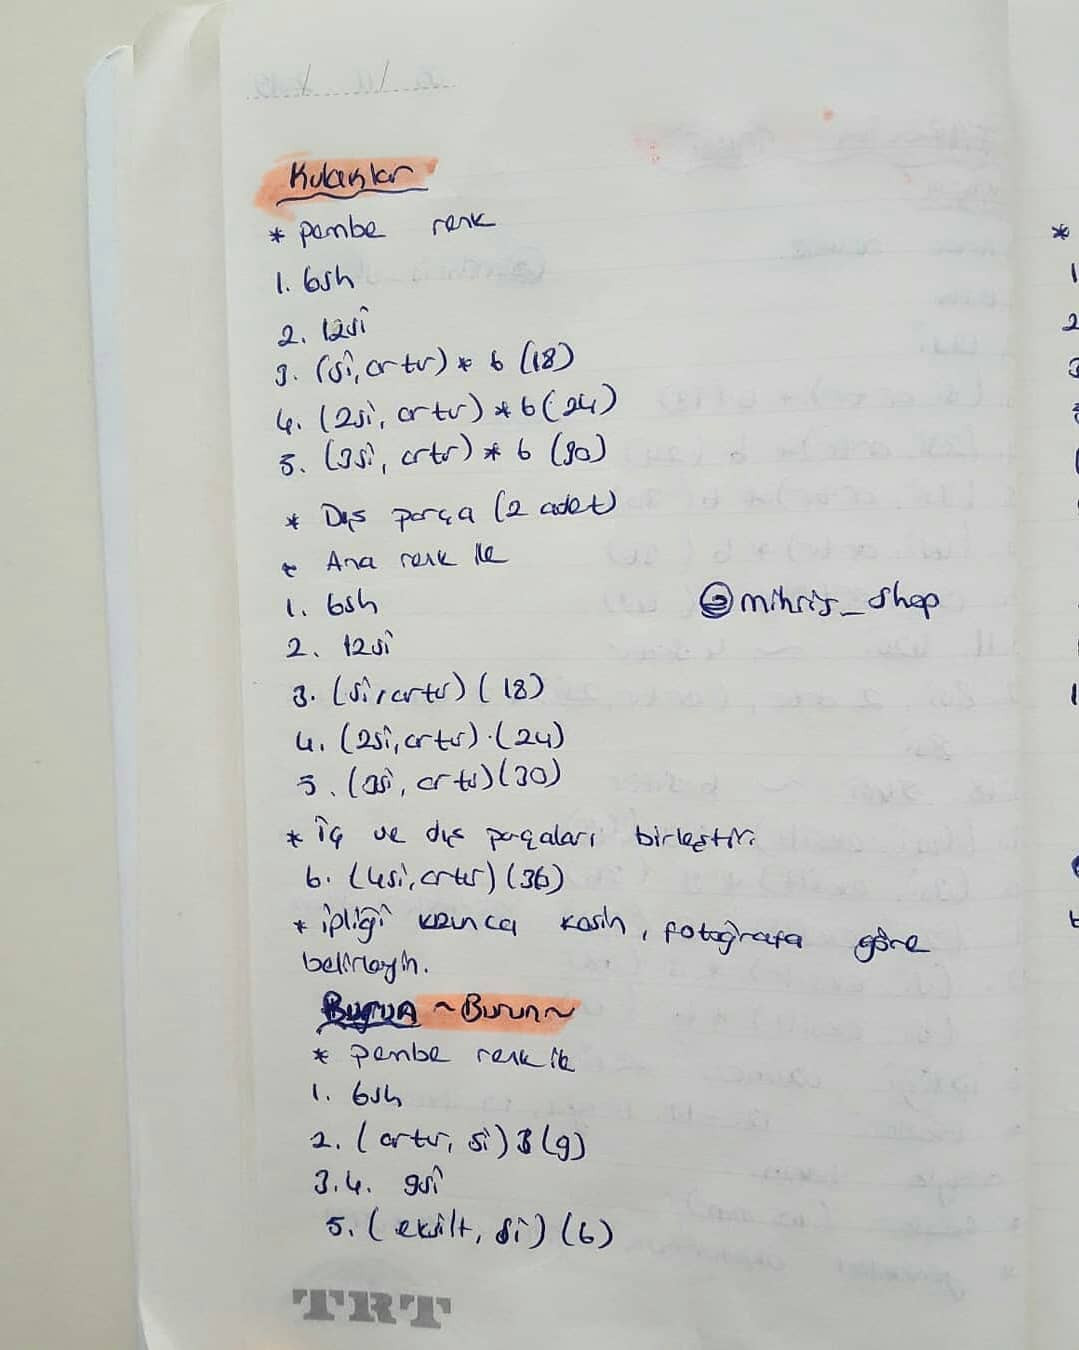 Kulaklar
* pembe renk
1. 6sh
2. 12si
3. (si, artır) * 6 (18)
4. (2si, artır) * 6 (24)
5. (3si, artır) * 6 (30)
* Dış parça (2 adet)
* Ana renk ile
1. 6sh
@mihris_shop
2. 12si
3. (si, artır) (18)
4. (2si, artır) (24)
5. (3si, artır) (30)
* İç ve dış parçaları birleştir.
6. (4si, artır) (36)
* ipliği uzunca kesin, fotoğrafa göre
belirleyin.
Burun ~ Burun ~
* pembe renk ile
1. 6sh
2. (artır, si) 3 (9)
3.4. 9si
5. (eksilt, si) (6)
TRT